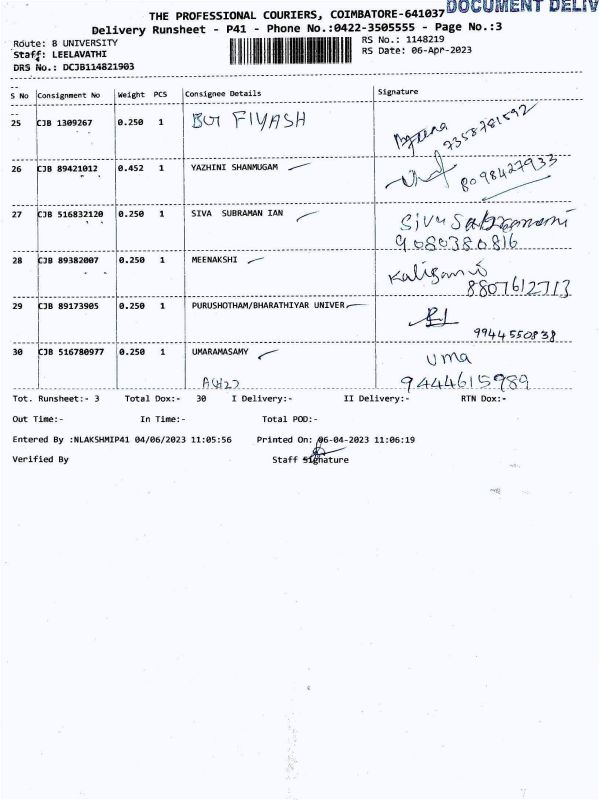 DOCUMENT DELIV
THE PROFESSIONAL COURIERS, COIMBATORE-641037
Delivery Runsheet - P41 - Phone No.:0422-3505555 - Page No.:3
Route: B UNIVERSITY
RS No.: 1148219
Staff: LEELAVATHI
RS Date: 06-Apr-2023
DRS No.: DCJB114821903
S No Consignment No Weight PCS Consignee Details Signature
25 CJB 1309267 0.250 1
7358781592
26 CJB 89421012 0.452 1 YAZHINI SHANMUGAM
8098427933
27 CJB 516832120 0.250 1 SIVA SUBRAMAN IAN
9080380816
28 CJB 89382007 0.250 1 MEENAKSHI
8807612713
29 CJB 89173905 0.250 1 PURUSHOTHAM/BHARATHIYAR UNIVER
9944550838
30 CJB 516780977 0.250 1 UMARAMASAMY uma
9444615989
Tot. Runsheet:- 3 Total Dox:- 30 I Delivery:- II Delivery:- RTN Dox:-
Out Time:- In Time:- Total POD:-
Entered By :NLAKSHMIP41 04/06/2023 11:05:56 Printed On: 06-04-2023 11:06:19
Verified By Staff Signature